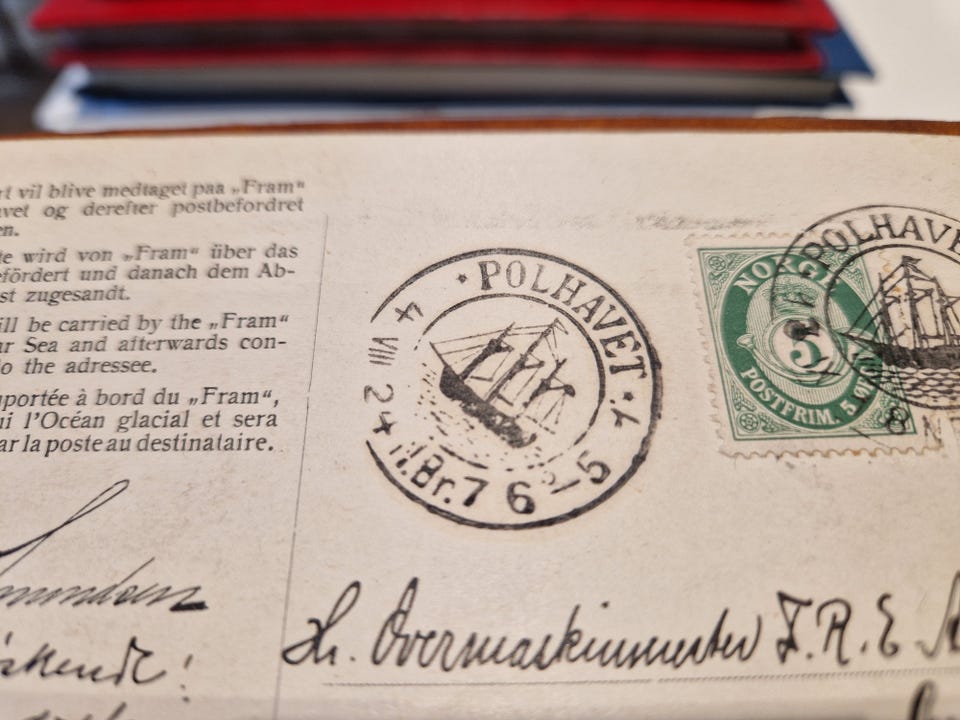 vil blive medtaget paa „Fram“
og derefter postbefordret
wird von „Fram“ über das
und danach dem Ab-
zugesandt.
be carried by the „Fram“
Sea and afterwards con-
the adressee.
à bord du „Fram“,
l'Océan glacial et sera
la poste au destinataire.
POLHAVET
4 VIII 24
Br. 7 6 -5
NORGE
5
POSTFRIM. 5
POLHAVE
8
Hr. Overmaskinmester F. R. E.